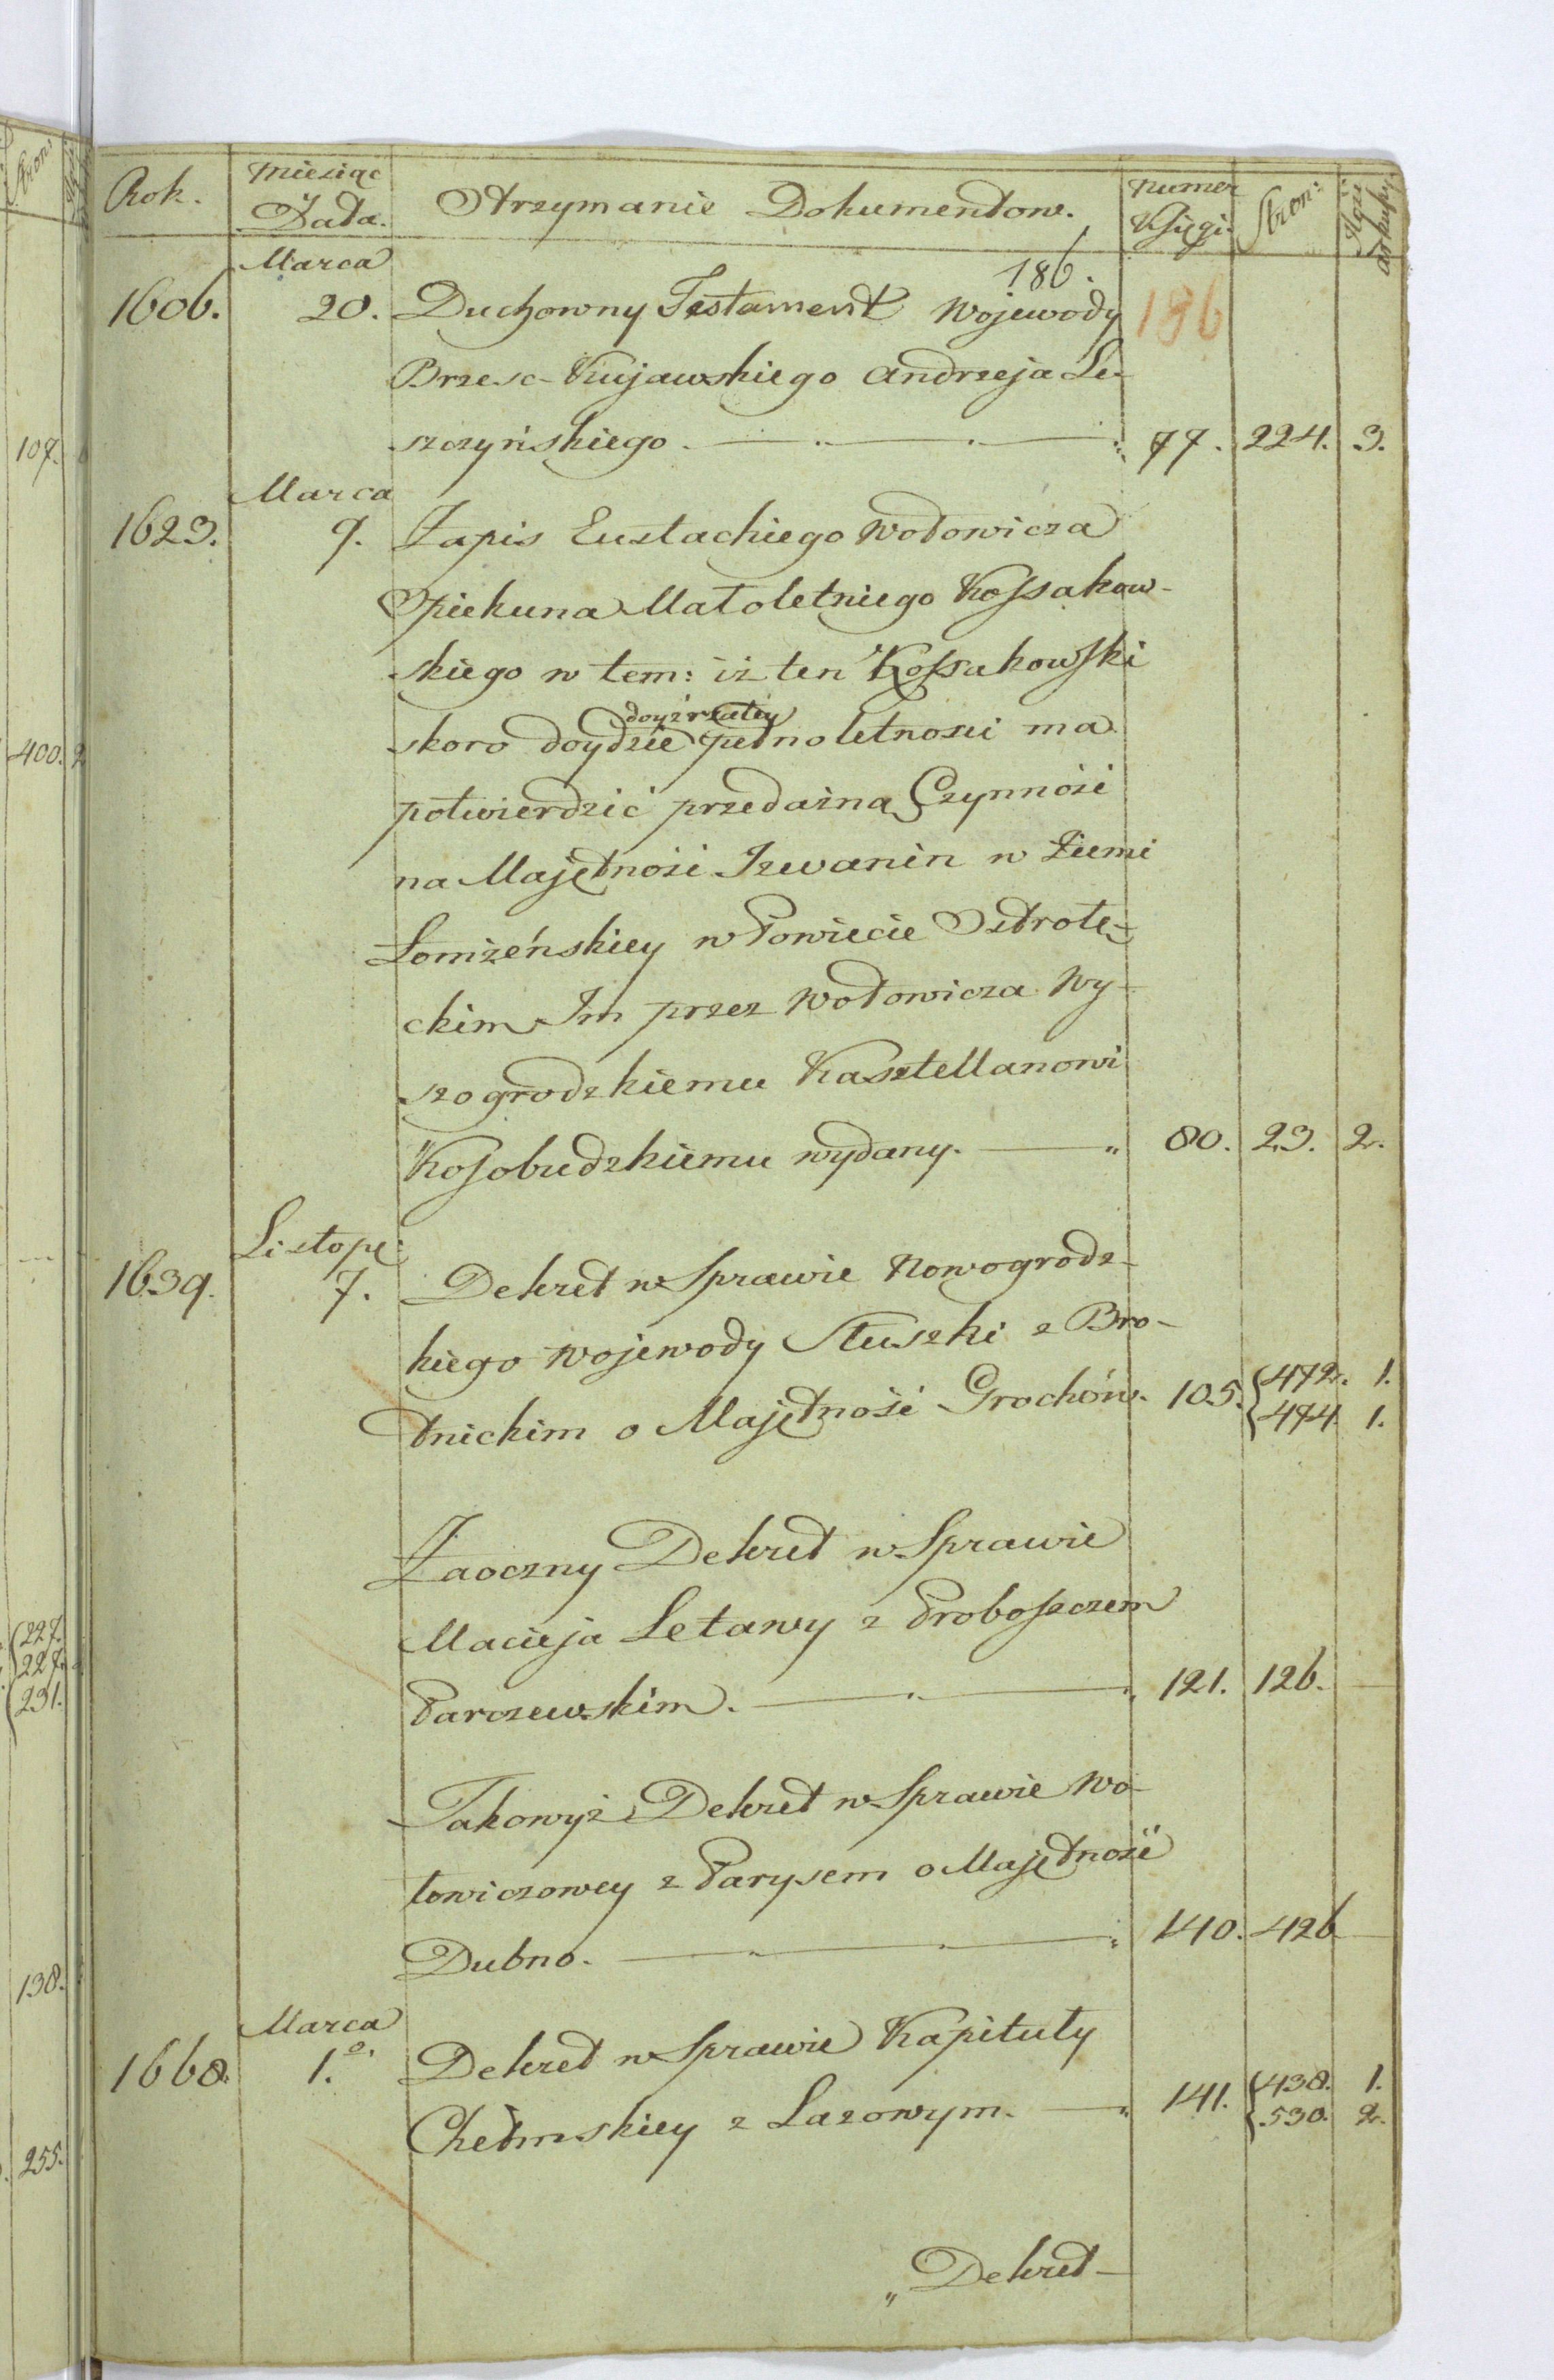 Rok. Miesiąc Data. Otrzymanie Dokumentow. Numer Księgi. Stron: arkuszy.
186.
186
Marca
1606. 20. Duchowny Testament Wojewody
Brzesc-Kujawskiego Andrzeja Le-
szczyńskiego. 77. 224. 3.
Marca
1623. 9. Zapis Eustachiego Wołowicza
Opiekuna Małoletniego Kossakow-
skiego w tem: iż ten Kossakowski
doyźrzałey
skoro doydzie pełnoletnosci ma
potwierdzić przedażną Czynność
na Majętność Iwanin w Ziemi
Łomżeńskiey w Powiecie Ostrołę-
ckim Im przez Wołowicza Wy-
szogrodzkiemu Kasztellanowi
Kosobudzkiemu wydany. 80. 23. 2.
Listop:
1639. 7. Dekret w Sprawie Nowogrodz-
kiego Wojewody Słuszki z Bro-
tnickim o Majętność Grochów. 105. { 472. 1.
{ 474 1.
Zaoczny Dekret w Sprawie
Macieja Letawy z Proboszczem
Parczewskim. 121. 126.
Takowyż Dekret w Sprawie Wo-
łowiczowey z Parysem o Majętność
Dubno. 140. 426
Marca
1668. 1.º Dekret w Sprawie Kapituły
Chełmskiey z Lazowym. 141. { 438. 1.
{ 530. 2.
„ Dekret-
107.
400. 2
227.
227.
231.
138.
255.